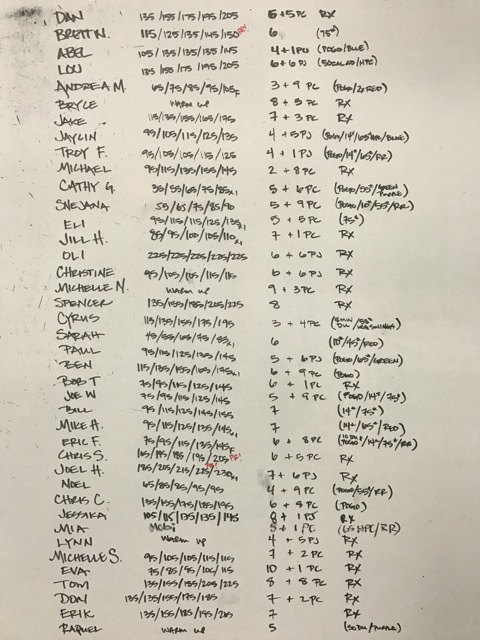 DAN 135/155/175/195/205 5+5PC RX
BRETT N. 115/125/135/145/150 PR! 6 (75#)
ABEL 105/135/135/135/145 4+1PU (POGO/BLUE)
LOU 135/155/175/195/205 6+6PJ
ANDREA M. 65/75/85/95/105F 3+9PC (POGO/2xRED)
BRYCE WARM UP 8+5PC RX
JAKE 115/135/155/165/175 7+3PC RX
JAYLIN 95/105/115/125/135 4+5PJ
TROY F. 95/105/105/115/125 4+1PJ (POGO/14"/65#/RR)
MICHAEL 95/115/135/155/145 2+8PC RX
CATHY G. 35/55/65/75/85x1 5+6PC (POGO/55#/GREEN PURPLE)
SNEJANA 55/65/75/85/90 5+9PC (POGO/10"/55#/RR)
ELI 95/115/115/125/135x1 5+5PC (75#)
JILL H. 85/95/100/105/110x1 7+1PC RX
OLI 225/225/225/225/225 6+6PJ RX
CHRISTINE 95/105/105/115/115 6+6PC RX
MICHELLE N. WARM UP 9+3PC RX
SPENCER 135/155/185/205/225 8 RX
CYRUS 115/135/155/175/195 3+4PC
SARAH 45/55/65/75/85x1 6 (10"/45#/RED)
PAUL 95/115/125/135/145 5+6PJ (POGO/65#/GREEN)
BEN 115/135/155/165/195x1 6+9PC (POGO)
BOB T 75/95/115/125/145 6+1PC RX
JOE W 75/95/115/125/145 5+9PC (POGO/14"/75#)
BILL 95/115/125/145/155 7 (14"/75#)
MIKE H. 95/115/125/135/145x1 7 (14"/65#/RED)
ERIC F. 75/95/115/135/145F 6+8PC
CHRIS S. 165/175/185/195/205 PR! 6+5PC RX
JOEL H. 185/205/215/225/230x1 7+6PJ RX
NOEL 65/85/85/95/95 4+9PC (POGO/55#/RR)
CHRIS C. 135/155/175/185/195 6+9PC (POGO)
JESSIKA 105/115/135/135/145 8+1PJ RX
MIA 5+1PC (65HPC/RR)
LYNN WARM UP 4+5PJ RX
MICHELLE S. 95/105/105/115/115 7+2PC RX
EVA 75/85/95/105/115 10+1PC RX
TOM 135/155/185/205/225 8+8PC RX
DON 135/135/155/175/185 7+2PC RX
ERIK 135/155/185/195/215 7 RX
RAQUEL WARM UP 5